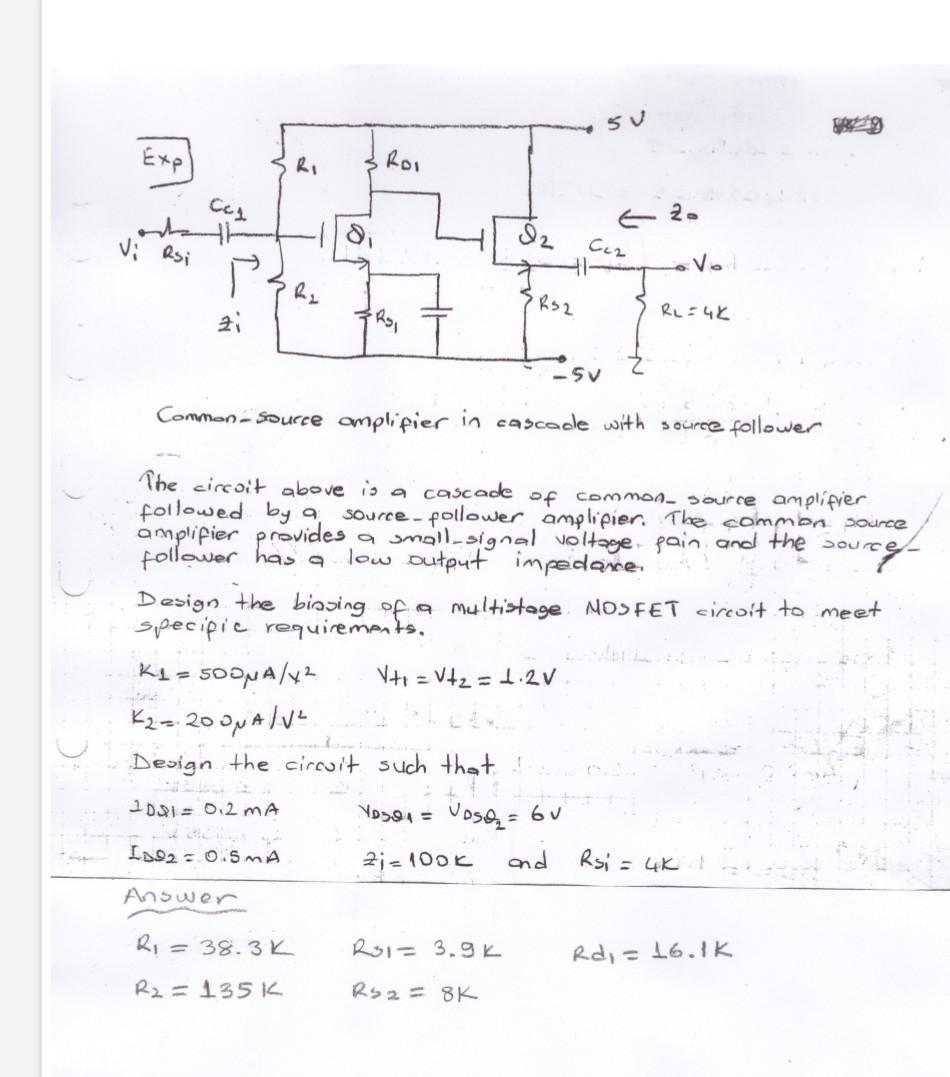 5V
Exp
R1
RD1
Cc1
Vi
Rsi
Q1
Q2
← Zo
Cc2
Vo
Zi
R2
Rs1
Rs2
RL = 4K
-5V
Common-source amplifier in cascade with source follower
The circuit above is a cascade of common-source amplifier
followed by a source-follower amplifier. The common source
amplifier provides a small-signal voltage gain and the source-
follower has a low output impedance.
Design the biasing of a multistage MOSFET circuit to meet
specific requirements.
K1 = 500μA/V² Vt1 = Vt2 = 1.2V
K2 = 200μA/V²
Design the circuit such that
IDQ1 = 0.2 mA VDSQ1 = VDSQ2 = 6V
IDQ2 = 0.5mA Zi = 100K and Rsi = 4K
Answer
R1 = 38.3K Rs1 = 3.9K Rd1 = 16.1K
R2 = 135K Rs2 = 8K